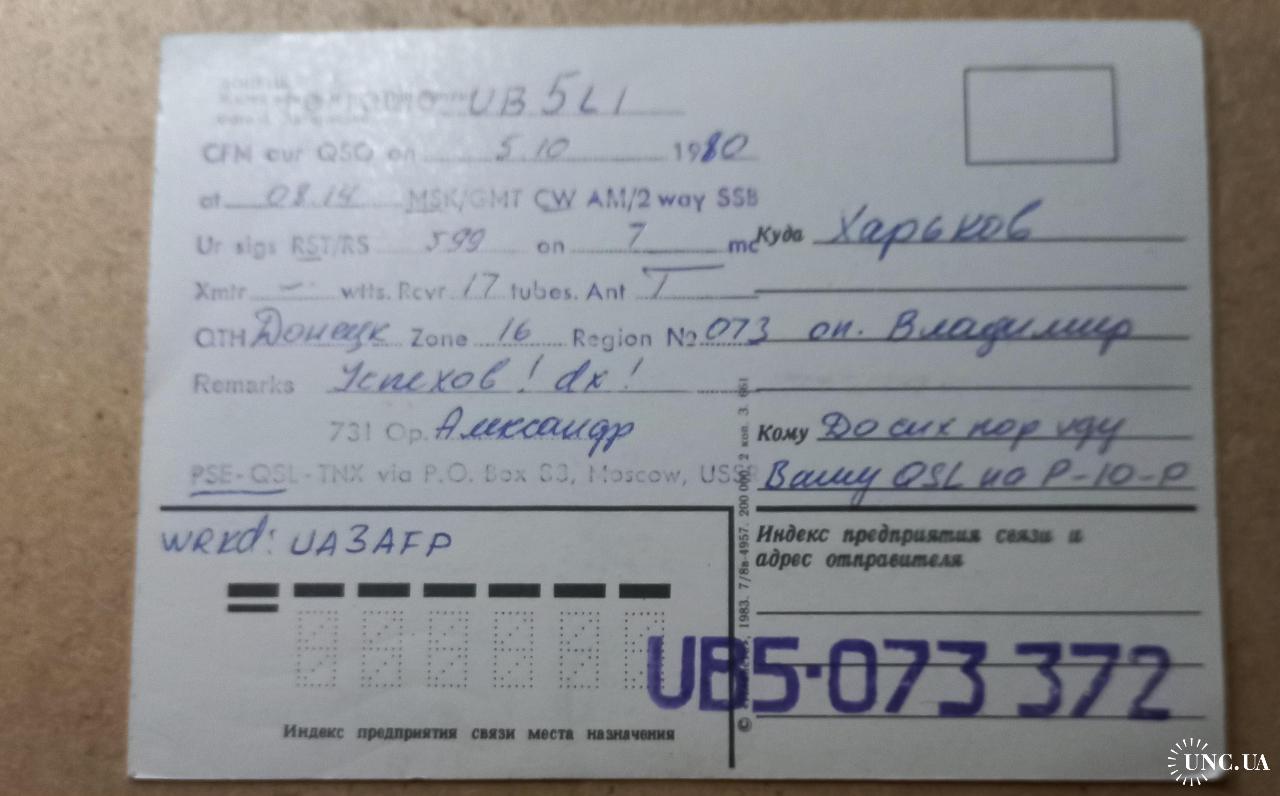 To Radio UB5LI
CFM our QSO on 5.10 1980
at 08.14 MSK/GMT CW AM/2 way SSB
Ur sigs RST/RS 599 on 7 mc
Xmtr – wtts. Rcvr 17 tubes. Ant T
QTH Донецк Zone 16 Region № 073
Remarks Успехов! dx!
731 Op. Александр
PSE-QSL-TNX via P.O. Box 88, Moscow, USSR
wrkd: UA3AFP
Индекс предприятия связи места назначения
Куда Харьков
оп. Владимир
Кому До сих пор жду
Вашу QSL на Р-10-Р
Индекс предприятия связи и
адрес отправителя
UB5-073 372
1983. 7/8в-4957. 200 000. 2 коп. З. 661
UNC.UA